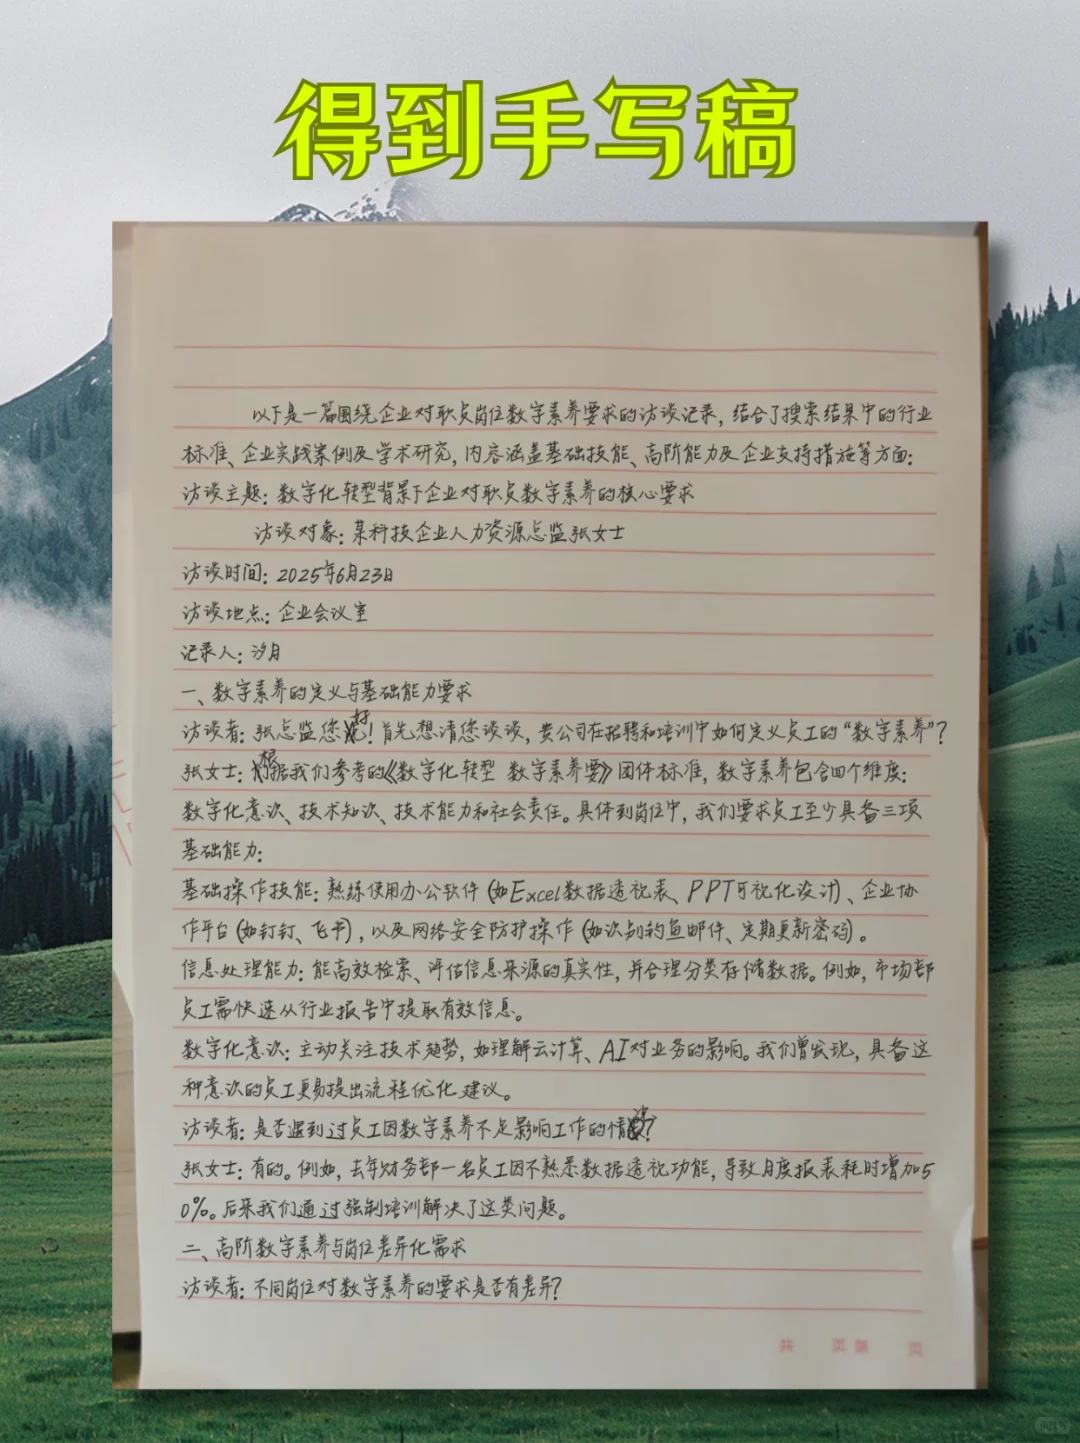 得到手写稿
以下是一篇围绕企业对职员岗位数字素养要求的访谈记录，结合了搜索结果中的行业
标准、企业实践案例及学术研究，内容涵盖基础技能、高阶能力及企业支持措施等方面：
访谈主题：数字化转型背景下企业对职员数字素养的核心要求
访谈对象：某科技企业人力资源总监张女士
访谈时间：2025年6月23日
访谈地点：企业会议室
记录人：汐月
一、数字素养的定义与基础能力要求
访谈者：张总监您好！首先想请您谈谈，贵公司在招聘和培训中如何定义员工的“数字素养”？
张女士：根据我们参考的《数字化转型 数字素养要》团体标准，数字素养包含四个维度：
数字化意识、技术知识、技术能力和社会责任。具体到岗位中，我们要求员工至少具备三项
基础能力：
基础操作技能：熟练使用办公软件（如Excel数据透视表、PPT可视化设计）、企业协
作平台（如钉钉、飞书），以及网络安全防护操作（如识别钓鱼邮件、定期更新密码）。
信息处理能力：能高效检索、评估信息来源的真实性，并合理分类存储数据。例如，市场部
员工需快速从行业报告中提取有效信息。
数字化意识：主动关注技术趋势，如理解云计算、AI对业务的影响。我们曾发现，具备这
种意识的员工更易提出流程优化建议。
访谈者：是否遇到过员工因数字素养不足影响工作的情况？
张女士：有的。例如，去年财务部一名员工因不熟悉数据透视功能，导致月度报表耗时增加5
0%。后来我们通过强制培训解决了这类问题。
二、高阶数字素养与岗位差异化需求
访谈者：不同岗位对数字素养的要求是否有差异？
共 页 第 页
小红书